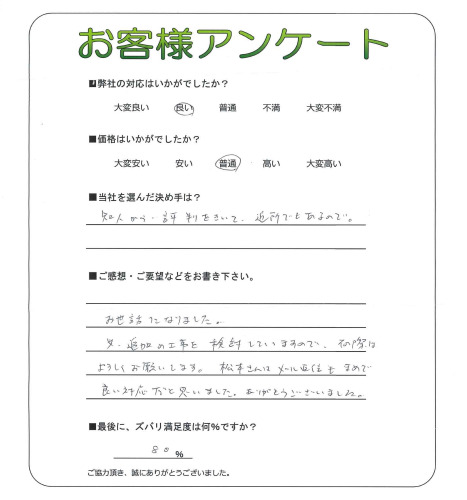 お客様アンケート
■弊社の対応はいかがでしたか？
大変良い 良い 普通 不満 大変不満
■価格はいかがでしたか？
大変安い 安い 普通 高い 大変高い
■当社を選んだ決め手は？
知人から評判をきいて、近所でもあるので。
■ご感想・ご要望などをお書き下さい。
お世話になりました。
又、追加の工事を検討していますので、その際は
よろしくお願いします。松本さんはメール返信もまめで
良い対応だと思いました。ありがとうございました。
■最後に、ズバリ満足度は何%ですか？
80 %
ご協力頂き、誠にありがとうございました。